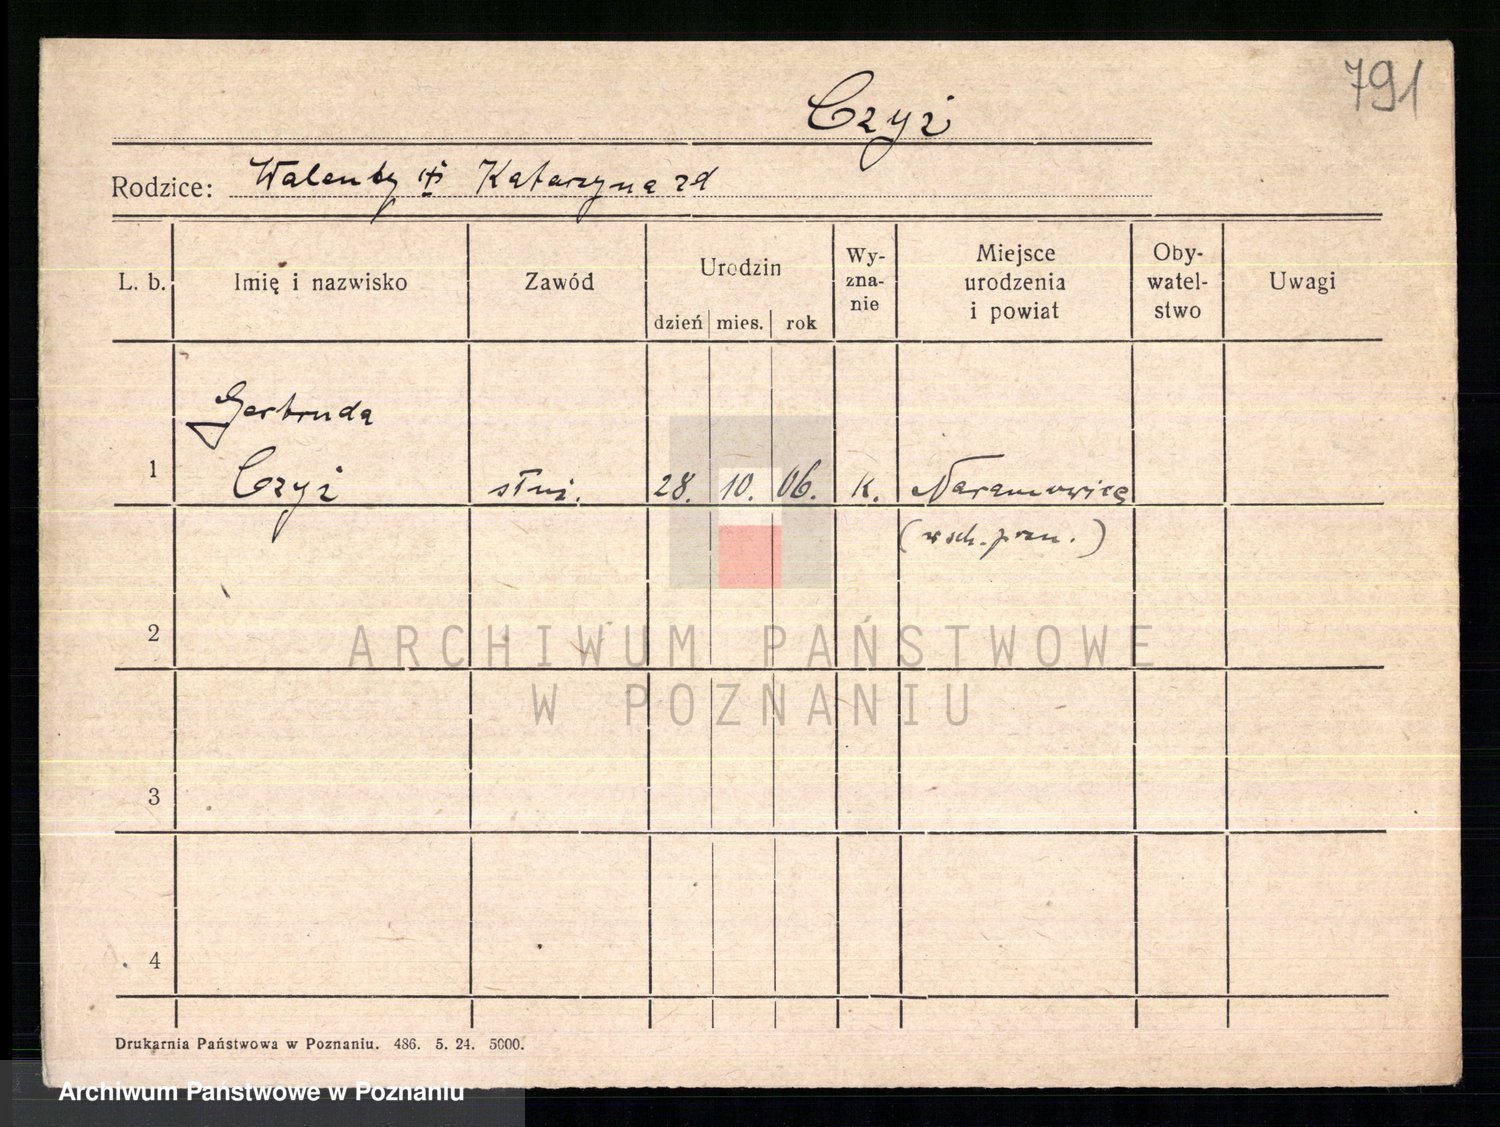 791
Czyż
Rodzice: Walenty Katarzyna zd
L. b. Imię i nazwisko Zawód Urodzin dzień mies. rok Wy-zna-nie Miejsce urodzenia i powiat Oby-watel-stwo Uwagi
Gertruda
1 Czyż służ. 28. 10. 06. K. Naramowice
(w sch. pozn.)
2
ARCHIWUM PAŃSTWOWE
W POZNANIU
3
4
Drukarnia Państwowa w Poznaniu. 486. 5. 24. 5000.
Archiwum Państwowe w Poznaniu